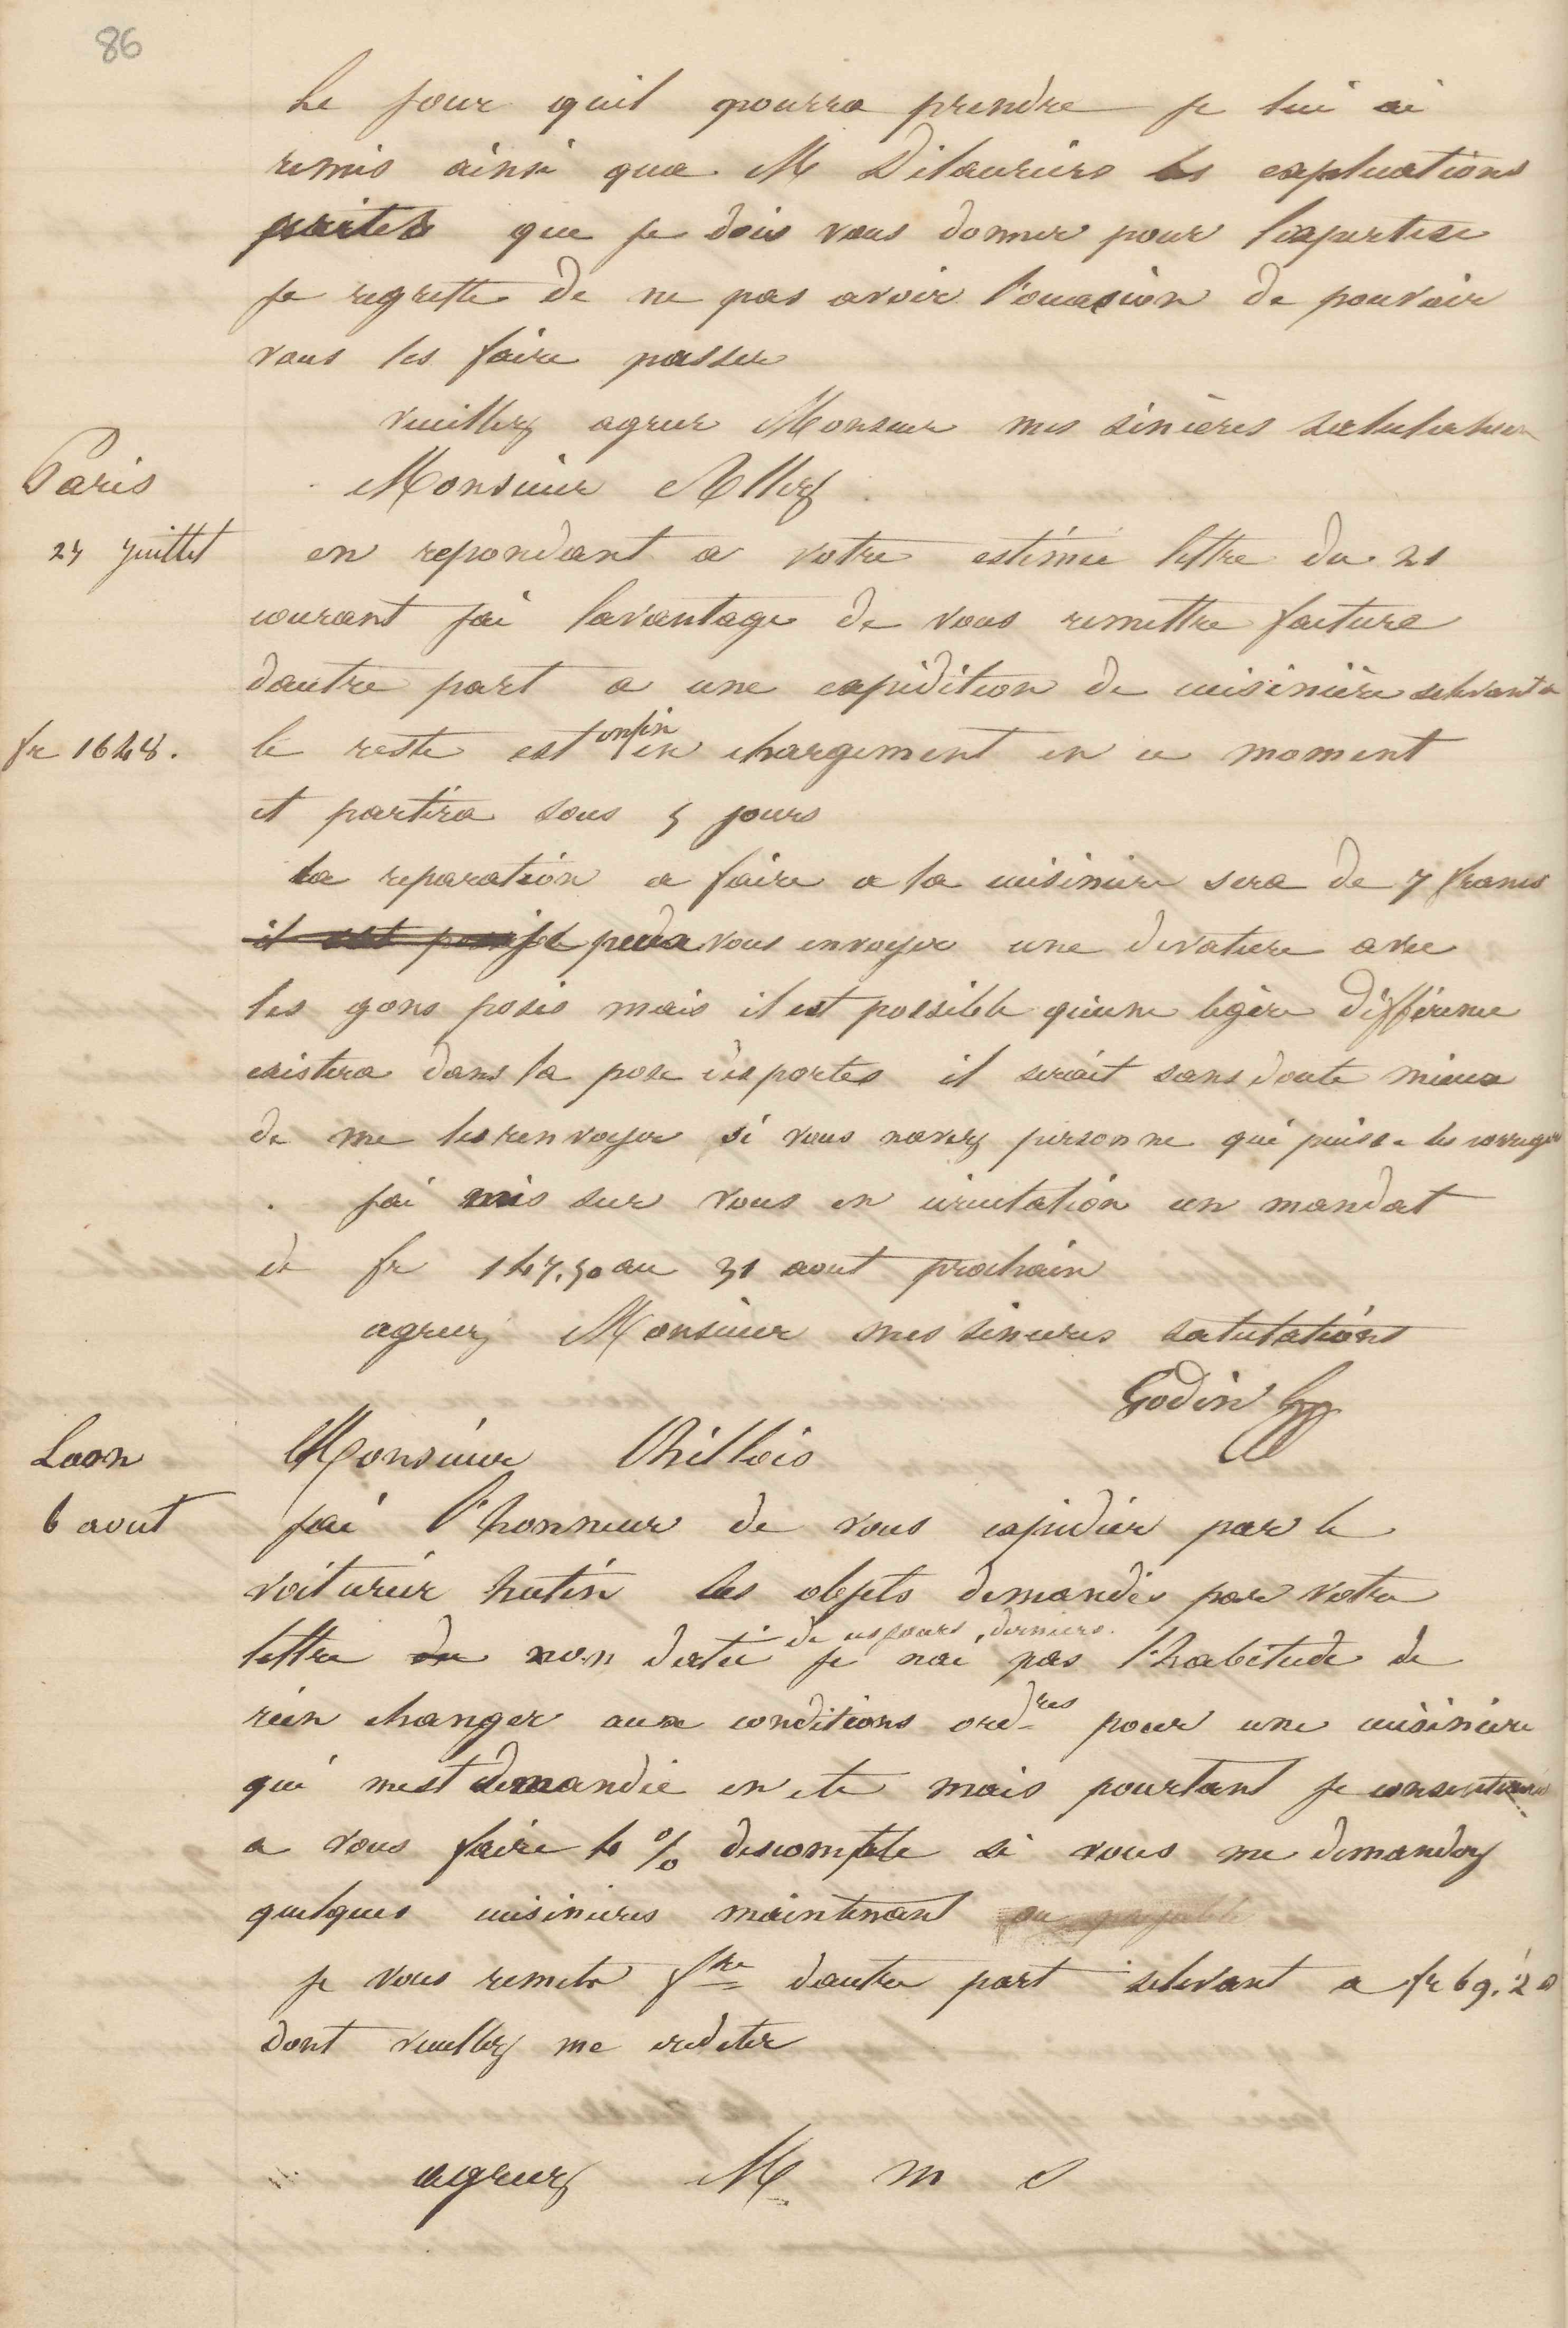 86
le jour quil pourra prendre je lui ai
remis ainsi qua M Delauriers les explications
que je dois vous donner pour lexpertise
je regrette de ne pas avoir l'ouasion de pouvoir
vous les faire passer
veuillez agreer Monsieur mes sincères salutations
Paris
Monsieur Allez
24 juillet
en repondant a votre estimée lettre du 21
courant jai lavantage de vous remettre facture
dautre part a une expédition de cuisinière selevant a
fr 1648.
le reste est enfin en chargement en ce moment
et partira sous 5 jours
la reparation a faire a la cuisiniere sera de 7 francs
il est je peux vous envoyer une devature avec
les gons posés mais il est possible qu'une légère différence
existera dans la pose des portes il serait sans doute mieux
de me les renvoyer si vous navez personne qui puisse les corriger
jai mis sur vous en circulation un mandat
de fr 147.50 au 31 aout prochain
agreez Monsieur mes sinceres salutations
Godin
Laon
Monsieur Chillois
6 aout
jai l'honneur de vous expedier par le
voiturier hutin les objets demandés par votre
lettre du non datée de ces jours derniers. je nai pas l'habitude de
rien changer aux conditions ordres pour une cuisiniere
qui mest demandée en ete mais pourtant je consentirais
a vous faire 4 % descompte si vous me demandez
quelques cuisinieres maintenant
je vous remets fre dautre part selevant a fr 69.20
dont veuillez me crediter
agreez M m s